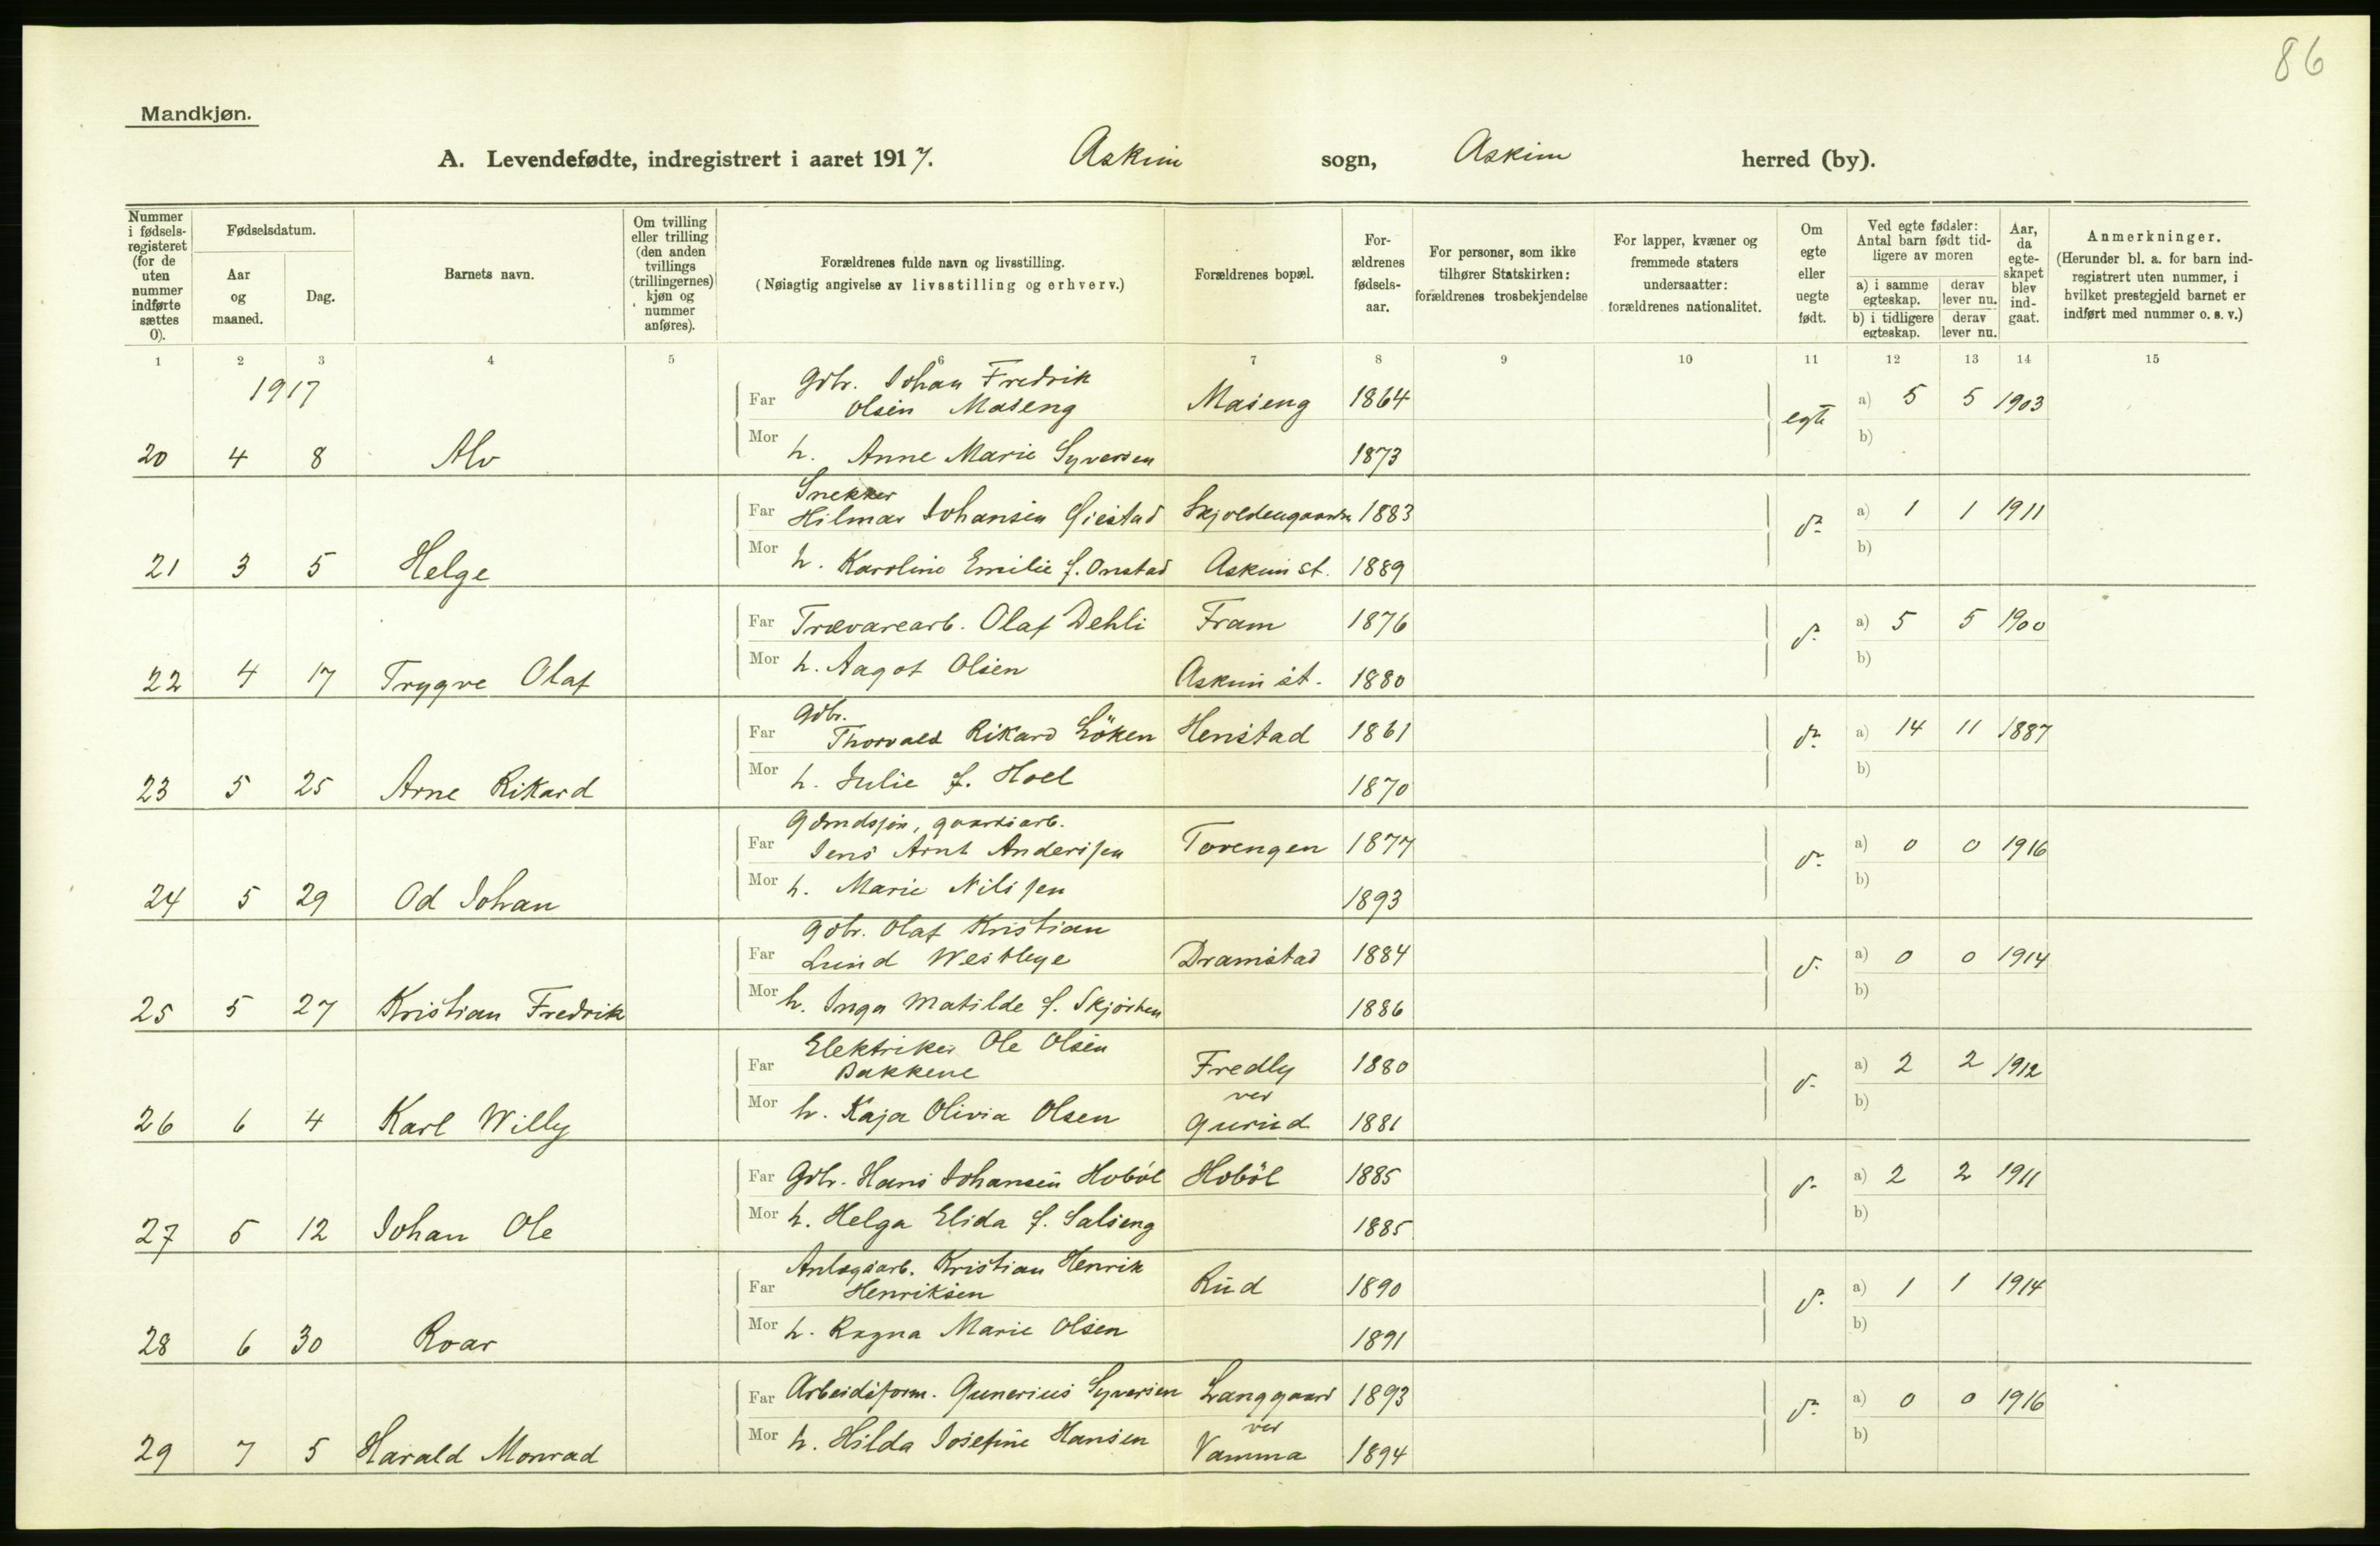 86
Mandkjøn.
A. Levendefødte, indregistrert i aaret 1917. Askim sogn, Askim herred (by).
Nummer i fødsels-registeret (for de uten nummer indførte sættes 0).
Fødselsdatum.
Aar og maaned.
Dag.
Barnets navn.
Om tvilling eller trilling (den anden tvillings (trillingernes) kjøn og nummer anføres).
Forældrenes fulde navn og livsstilling.
(Nøiagtig angivelse av livsstilling og erhverv.)
Forældrenes bopæl.
For-ældrenes fødsels-aar.
For personer, som ikke tilhører Statskirken: forældrenes trosbekjendelse
For lapper, kvæner og fremmede staters undersaatter: forældrenes nationalitet.
Om egte eller uegte født.
Ved egte fødsler: Antal barn født tid-ligere av moren
a) i samme egteskap. derav lever nu.
b) i tidligere egteskap. derav lever nu.
Aar, da egte-skapet blev ind-gaat.
Anmerkninger.
(Herunder bl. a. for barn ind-registrert uten nummer, i hvilket prestegjeld barnet er indført med nummer o. s. v.)
1 2 3 4 5 6 7 8 9 10 11 12 13 14 15
1917
Gbr. Johan Fredrik
Far Olsen Maseng Maseng 1864 egte a) 5 5 1903
Mor h. Anne Marie Syversen 1873 b)
20 4 8 Alv
Snekker
Far Hilmar Johansen Giestad 1883 do a) 1 1 1911
Mor h. Karoline Emilie f. Onstad Askim st. 1889 b)
21 3 5 Helge
Far Trævarearb. Olaf Dehli Fram 1876 do a) 5 5 1900
Mor h. Aagot Olsen Askim st. 1880 b)
22 4 17 Trygve Olaf
Gbr.
Far Thorvald Rikard Löken Henstad 1861 do a) 14 11 1887
Mor h. Julie f. Hoel 1870 b)
23 5 25 Arne Rikard
gaardsarb.
Far Jens Arnt Anderssen Tovengen 1877 do a) 0 0 1916
Mor h. Marie Nilssen 1893 b)
24 5 29 Od Johan
Gbr. Olaf Kristian
Far Lund Westbye Dramstad 1884 do a) 0 0 1914
Mor h. Inga Matilde f. Skjørten 1886 b)
25 5 27 Kristian Fredrik
Elektriker Ole Olsen
Far Bakkene Fredly 1880 do a) 2 2 1912
ved
Mor h. Kaja Olivia Olsen Gurud 1881 b)
26 6 4 Karl Willy
Far Gbr. Hans Johansen Hoböl Hoböl 1885 do a) 2 2 1911
Mor h. Helga Elida f. Salseng 1885 b)
27 5 12 Johan Ole
Anlægsarb. Kristian Henrik
Far Henriksen Rud 1890 do a) 1 1 1914
Mor h. Ragna Marie Olsen 1891 b)
28 6 30 Roar
Far Arbeidsform. Gunerius Syversen Langgaard 1893 do a) 0 0 1916
ved
Mor h. Hilda Josefine Hansen Vamma 1894 b)
29 7 5 Harald Monrad